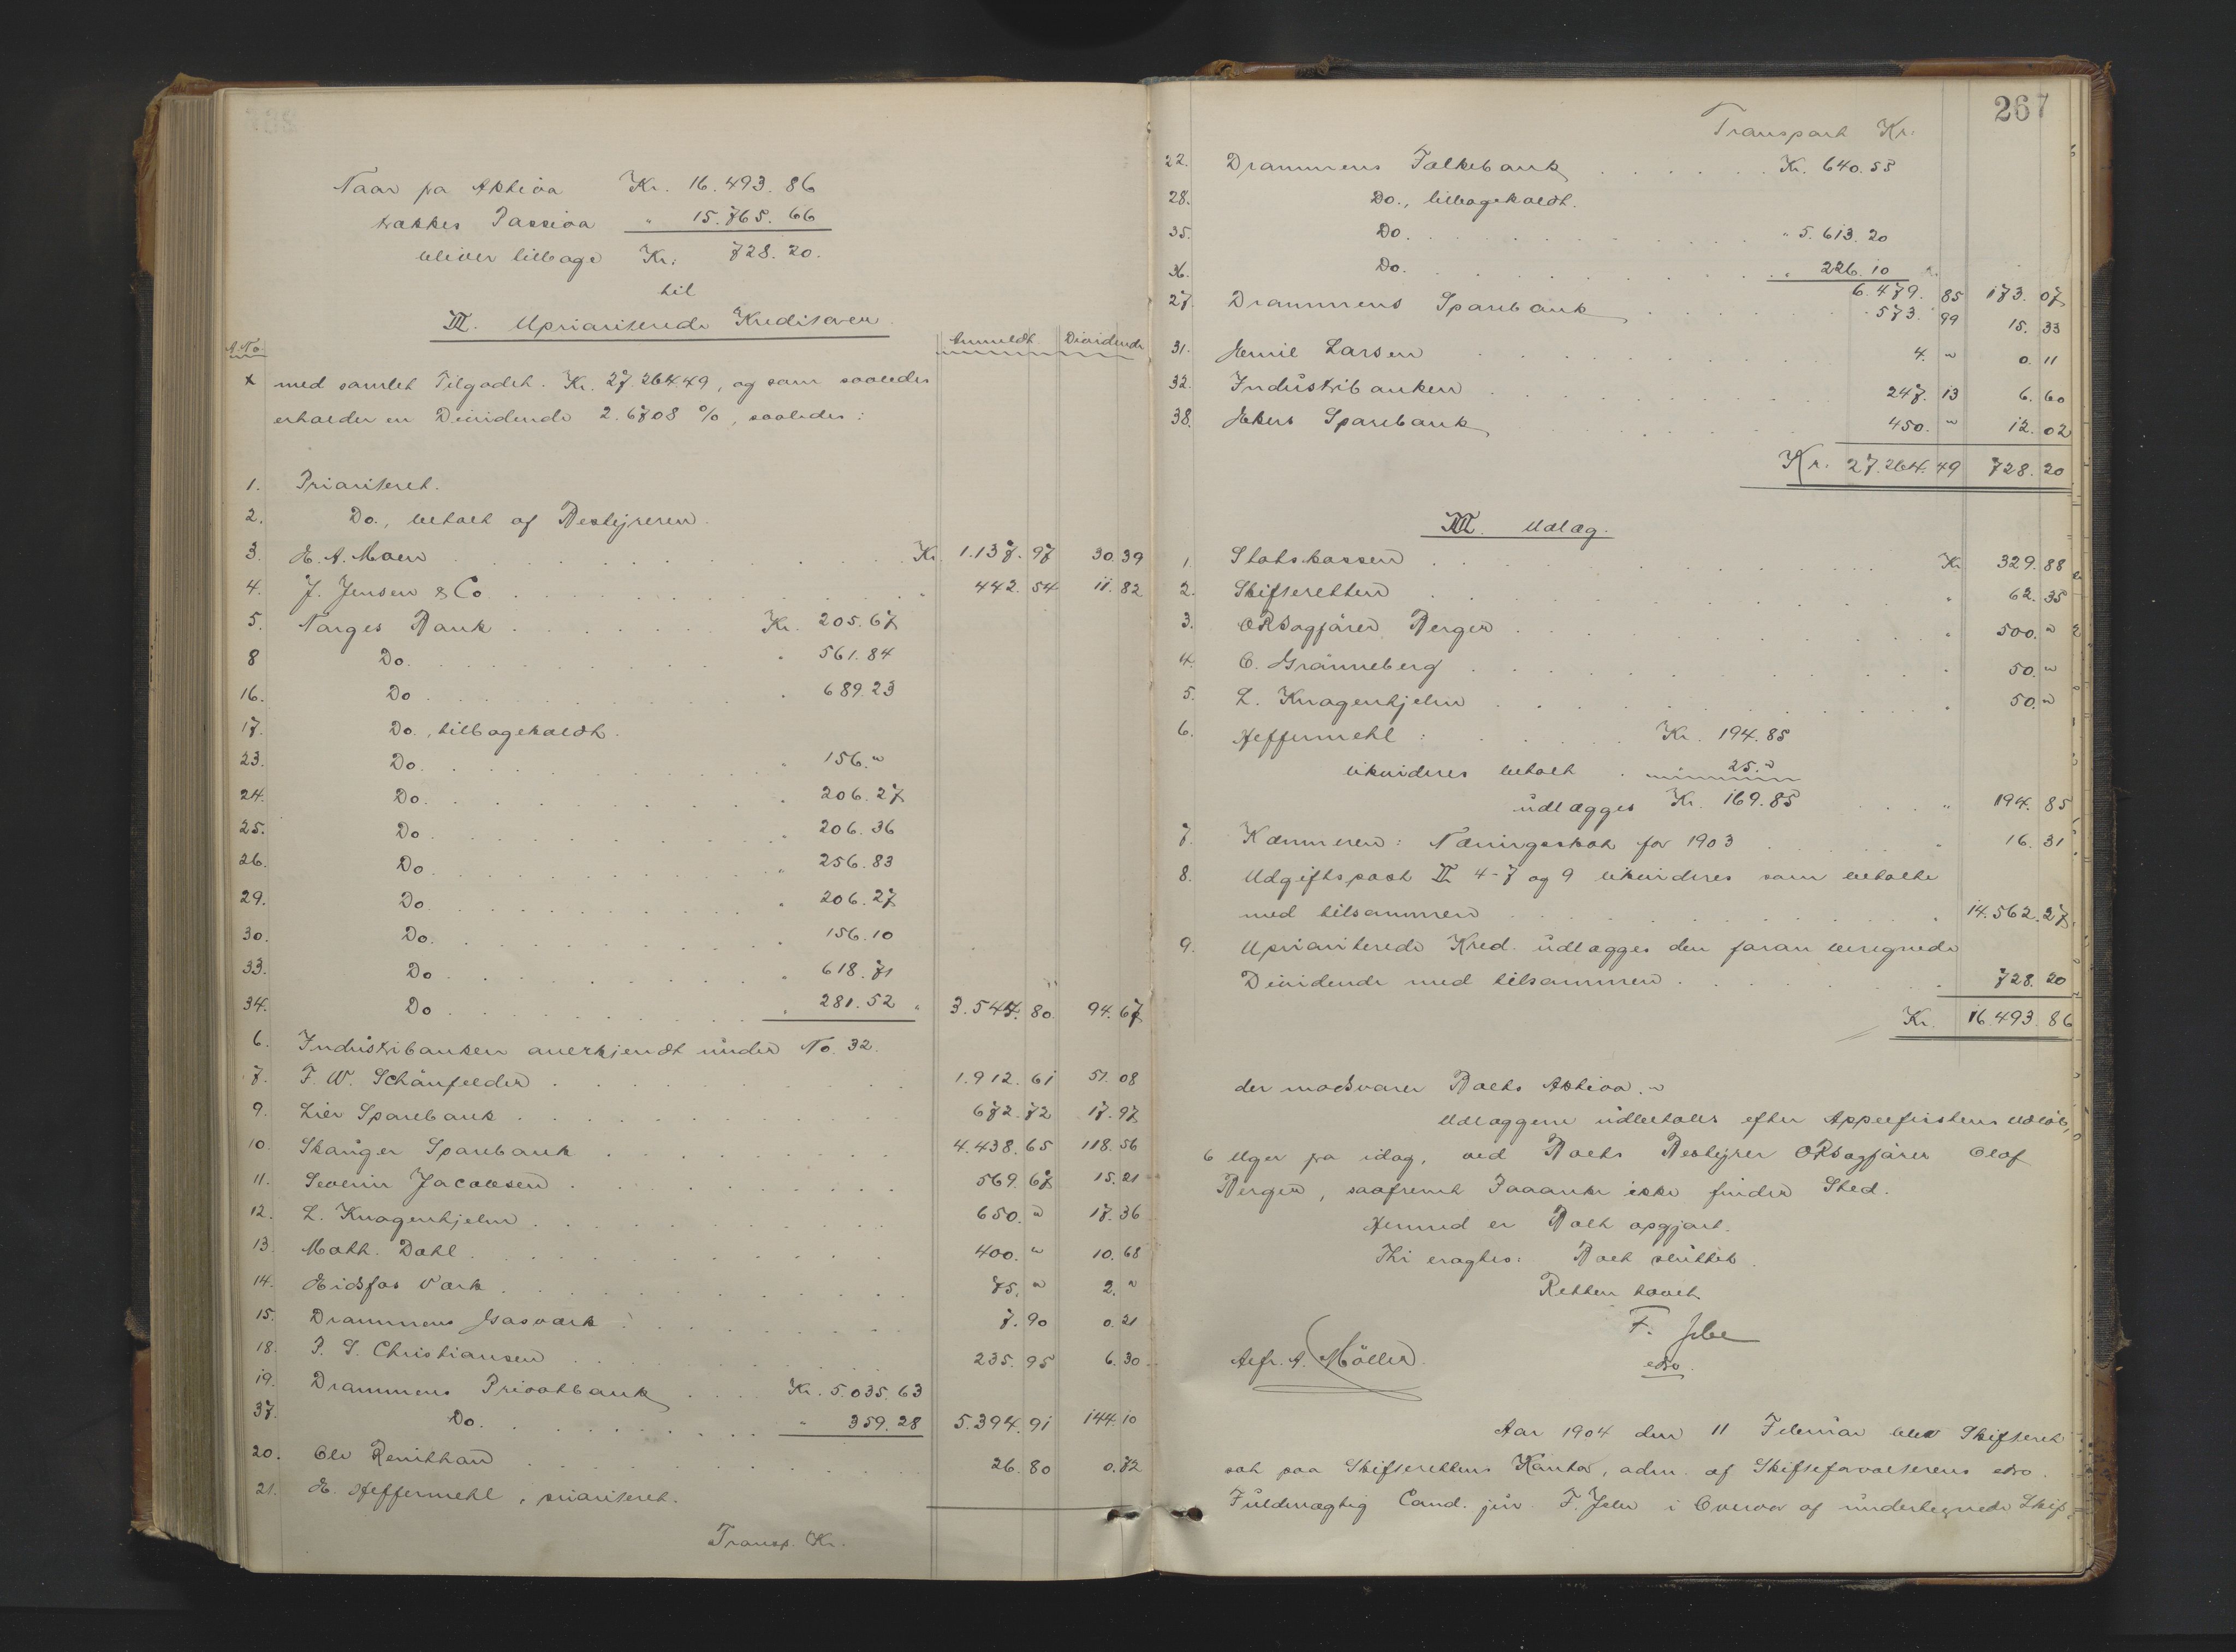 Naar fra Aktiva Kr. 16.493.86
trækkes Passiva " 15.765.66
bliver tilbage Kr. 728.20.
til
III. Uprioriterede Kreditorer.
A.No. Anmeldt Dividende
x med samlet Tilgodeh. Kr. 27.264.49, og som saaledes
erholder en Dividende 2.6708 %, saaledes:
1. Prioriteret.
2. Do., betalt af Bestyreren.
3. E. A. Moen . . . Kr. 1.137.97 30.39
4. J. Jensen & Co . . . " 442.54 11.82
5. Norges Bank . . . Kr. 205.67
8 Do. . . . " 561.84
16. Do . . . " 689.23
17. Do., tilbagekaldt.
23. Do. . . . " 156. "
24. Do. . . . " 206.27
25. Do . . . " 206.36
26. Do. . . . " 256.83
29. Do. . . . " 206.27
30. Do. . . . " 156.10
33. Do . . . " 618.71
34. Do . . . " 281.52 " 3.544.80 94.67
6. Industribanken anerkjendt under No. 32.
7. F. W. Schönfelder . . . 1.912.61 51.08
9. Lier Sparebank . . . 672.72 17.97
10. Skauger Sparebank . . . 4.438.65 118.56
11. Severin Jacobsen . . . 569.67 15.21
12. L. Knagenhjelm . . . 650. " 17.36
13. Math. Dahl . . . 400. " 10.68
14. Eidsfos Værk . . . 75. " 2. "
15. Drammens Gasværk . . . 7.90 0.21
18. P. S. Christiansen . . . 235.95 6.30
19. Drammens Privatbank . . . Kr. 5.035.63
37. Do. . . . " 359.28 5.394.91 144.10
20. Ole . . . 26.80 0.72
21. E. Heffermehl, prioriteret.
Transp. Kr.
267
Transport Kr.
22. Drammens Folkebank . . . Kr. 640.55
28. Do., tilbagekaldt.
35. Do. . . . " 5.613.20
36. Do. . . . " 226.10 " 6.479.85 173.07
27. Drammens Sparebank . . . 573.99 15.33
31. Emil Larsen . . . 4. " 0.11
32. Industribanken . . . 247.13 6.60
38. Ekers Sparebank . . . 450. " 12.02
Kr. 27.264.49 728.20
IV. Udlæg.
1. Statskassen . . . Kr. 329.88
2. Skifteretten . . . " 62.35
3. ORSagfører Berger . . . " 500. "
4. C. Grønneberg . . . " 50. "
5. L. Knagenhjelm . . . " 50. "
6. Heffermehl: . . . Kr. 194.85
likvideres betalt . 25. "
udlægges Kr. 169.85 . . . " 194.85
7. Kæmneren: Næringsskat for 1903 . . . " 16.31
8. Udgiftspost II 4-7 og 9 likvideres som betalte
med tilsammen . . . " 14.562.27
9. Uprioriterede Kred. udlægges den foran beregnede
Dividende med tilsammen . . . " 728.20
Kr. 16.493.86
der modsvarer Boets Aktiva. "
Udlæggene udbetales efter Appelfristens Udløb,
6 Uger fra idag, ved Boets Bestyrer ORSagfører Olaf
Berger, saafremt Paaanke ikke finder Sted.
Hermed er Boet opgjort.
Thi eragtes: Boet sluttet.
Retten hævet.
F.
cst.
Alfr. A. Möller.
Aar 1904 den 11 Februar blev Skifteret
sat paa Skifterettens Kontor, adm. af Skifteforvalterens edsv.
Fuldmægtig Cand. jur. F. i Overvær af undertegnede Skif-